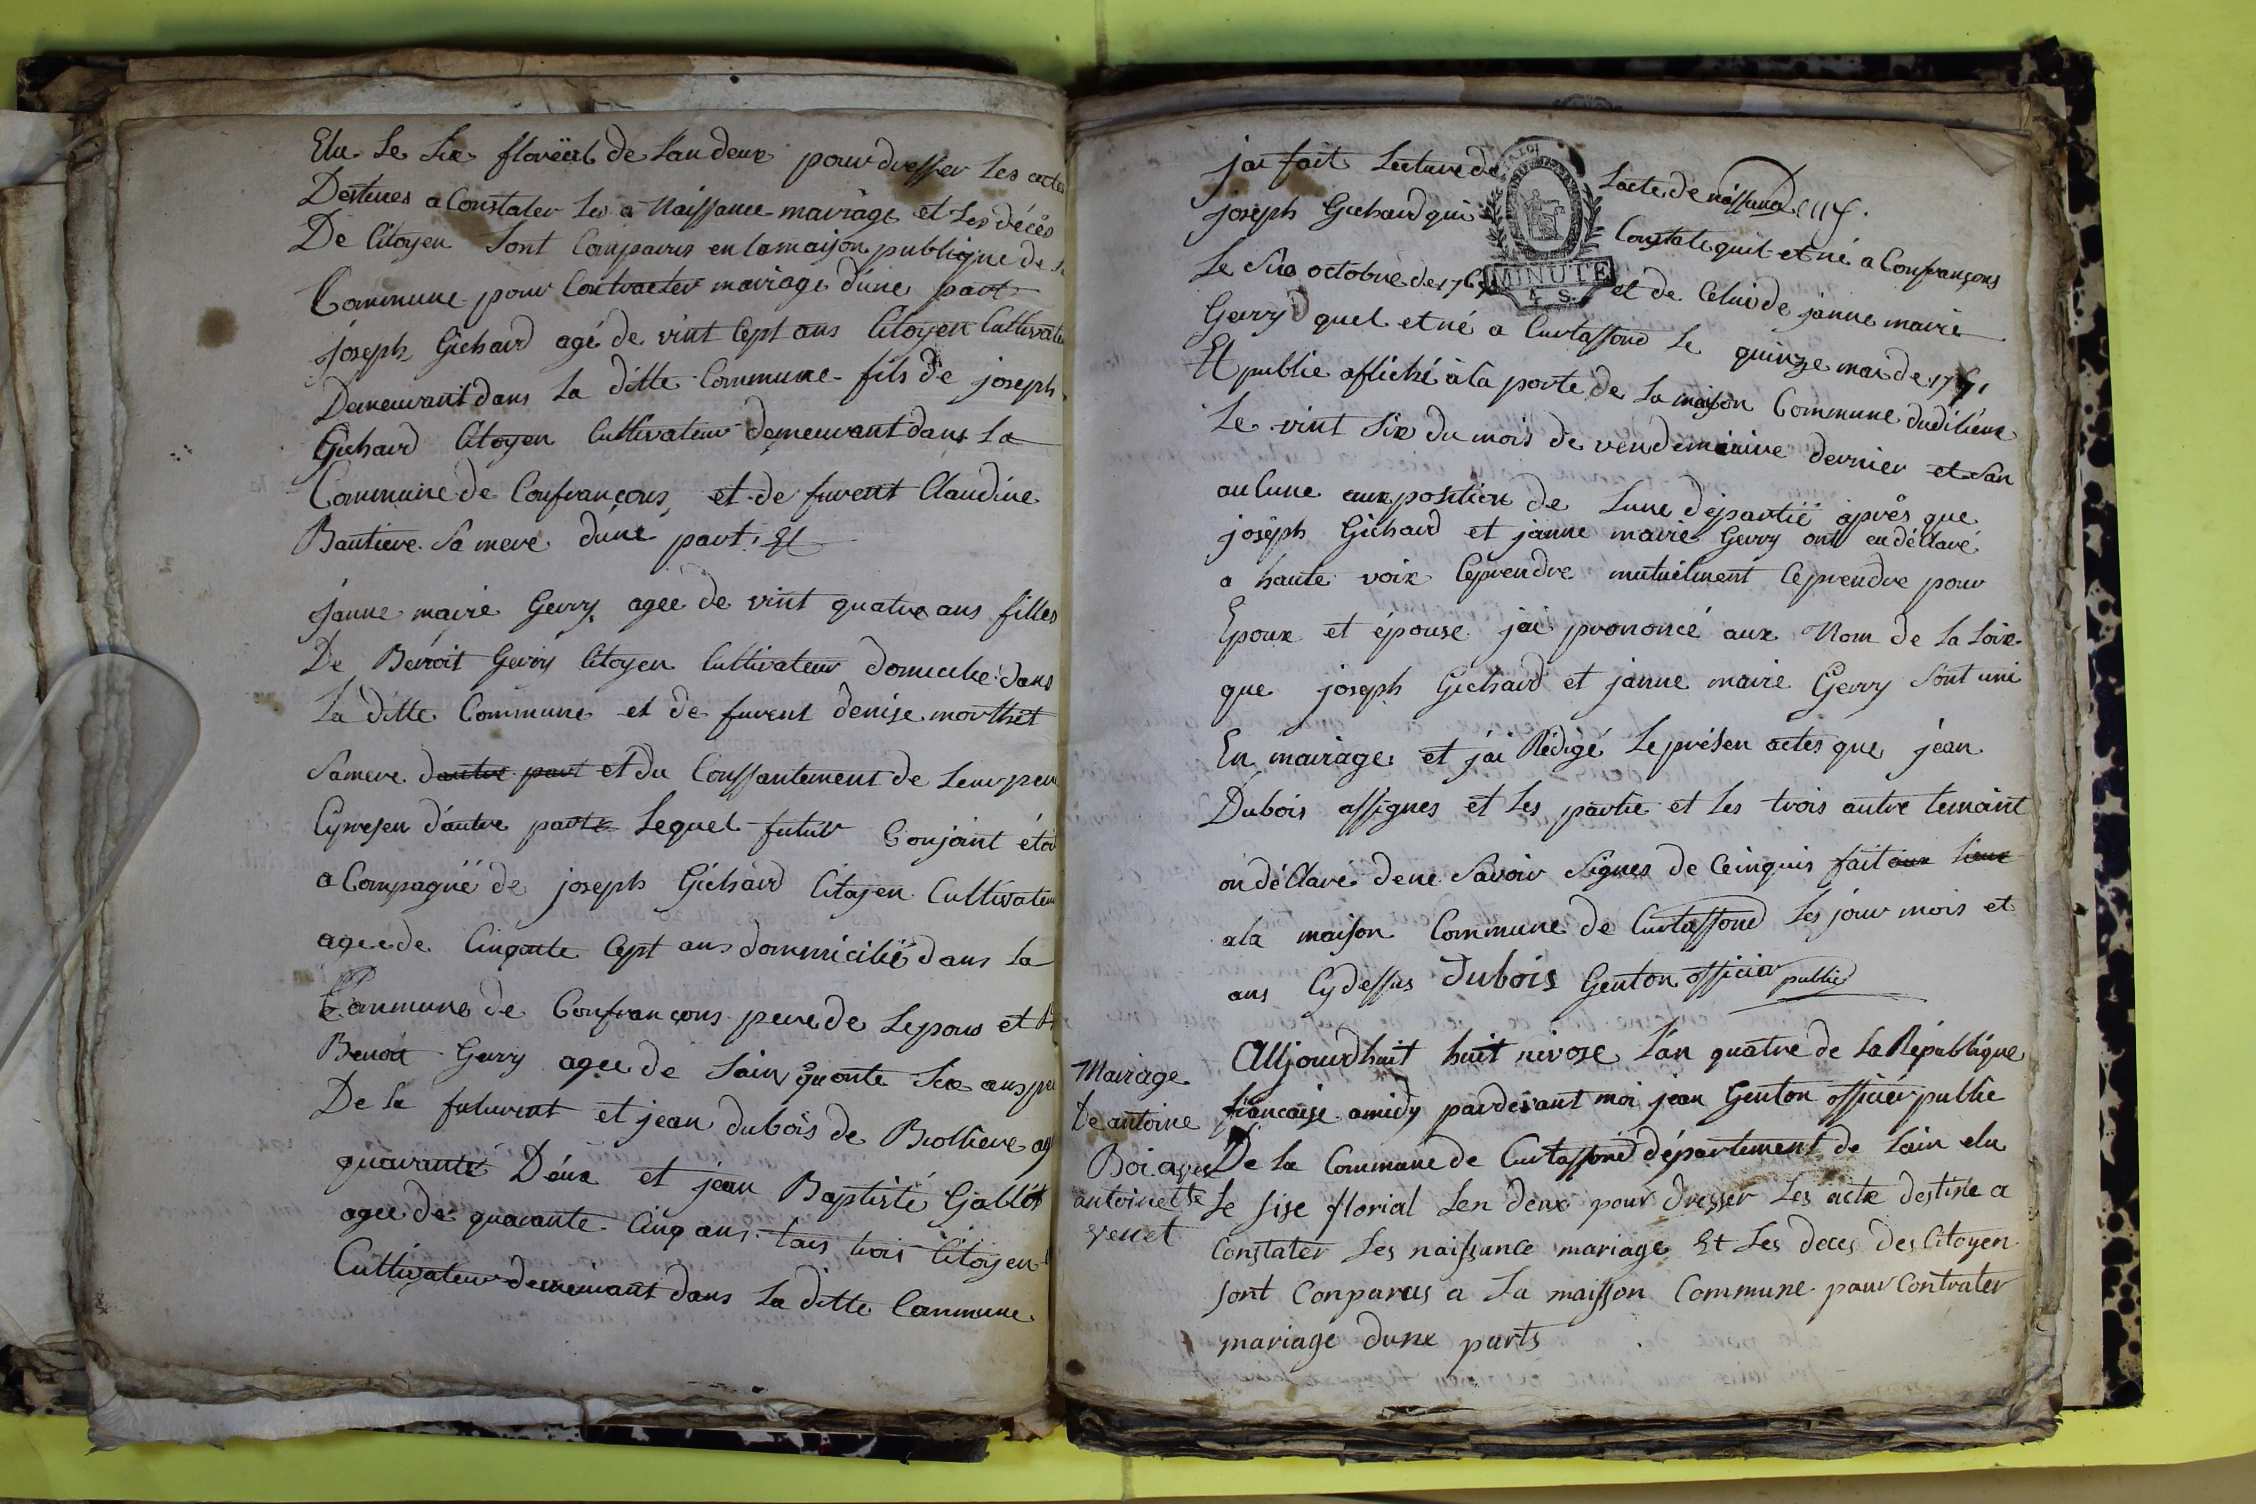 Elu Le Six floréal de L'an deux pour dresser Les actes
Destines a Constater Les a Naissance mariage et Les décès
De Citoyen Sont Comparus en la maison publique de
Commune pour Contracter mariage d'une part
joseph Gichard agé de vint Cept ans Citoyen Cultivateu
Demeurant dans La ditte Commune fils de joseph
Gichard Citoyen Cultivateur demeurant dans La
Commune de Confrançons et de furent Claudine
Bautiere Sa mere dune part Et
janne marie Gerry agee de vint quatre ans filles
De Benoit Gerry Citoyen Cultivateur domicilié dans
La ditte Commune et de furent denise morthet
Samere dautre part et du Conssantement de Leur pere
Cypresen d'autre parts Lequel futur Conjoint étoi
a Compagnë de joseph Gichard Citoyen Cultivateu
agee de Cinqante Cept ans dommicilië dans La
Commune de Confrancons pere de Lepous et
Benoit Gerry agee de Sainquonte Six ans pe
De La futurent et jean dubois de Broltiere ag
quarante Déux et jean Baptiste Gallét
agee de quarante Cinq ans tous trois Citoyen
Cultivateur demeurant dans La ditte Commune
jai fait Lecture de Lacte de naissance
joseph Gichard qui Constate quil et né a Confrançons
MINUTE
4 S.
Le Six octobre de 176 et de Celui de janne marie
Gerry quel et né a Curtassond Le quinze mar de 1771
Et publie affiché à la porte de La maison Commune dudiliеux
Le vint Six du mois de vendemiaire dernier et San
au Cune aux position de Lune departië après que
joseph Gichard et janne marie Gerry ont eu déClaré
a haute voix Ceprendre mutuélment Ceprendre pour
Epoux et épouse jai prononcé aux Nom de La Loix
que joseph Gichard et janne marie Gerry Sont uni
En mairage et j'ai Rédigé Le présen actes que jean
Dubois assignes et Les partie et Les trois autre temoint
on déClaré dene Savoir Signes de Ceinquis fait aux Lieux
ala maison Commune de Curtassond Les jour mois et
ans Cydessus dubois Genton officier public
Mariage
De antoine
Boi avec
antoinette
venet
Aujourdhuit huit nivose L'an quatre de La République
francaise amidy pardevant moi jean Genton officier public
De La Commune de Curtassond département de Lain elu
Le sise florial Len deux pour dresser Les acte destine a
Constater Les naissance mariage Et Les deces des Citoyen
sont Conparus a La maisson Commune pour Contrater
mariage dune parts